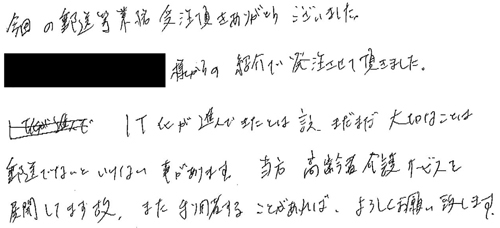 今回の郵送等業務受注頂きありがとうございました。
様からの紹介で発注させて頂きました。
IT化が進んできたとは言え まだまだ大切なことは
郵送でないといけない事があります。当方 高齢者介護サービスを
展開してます故、また利用することがあれば、よろしくお願い致します。